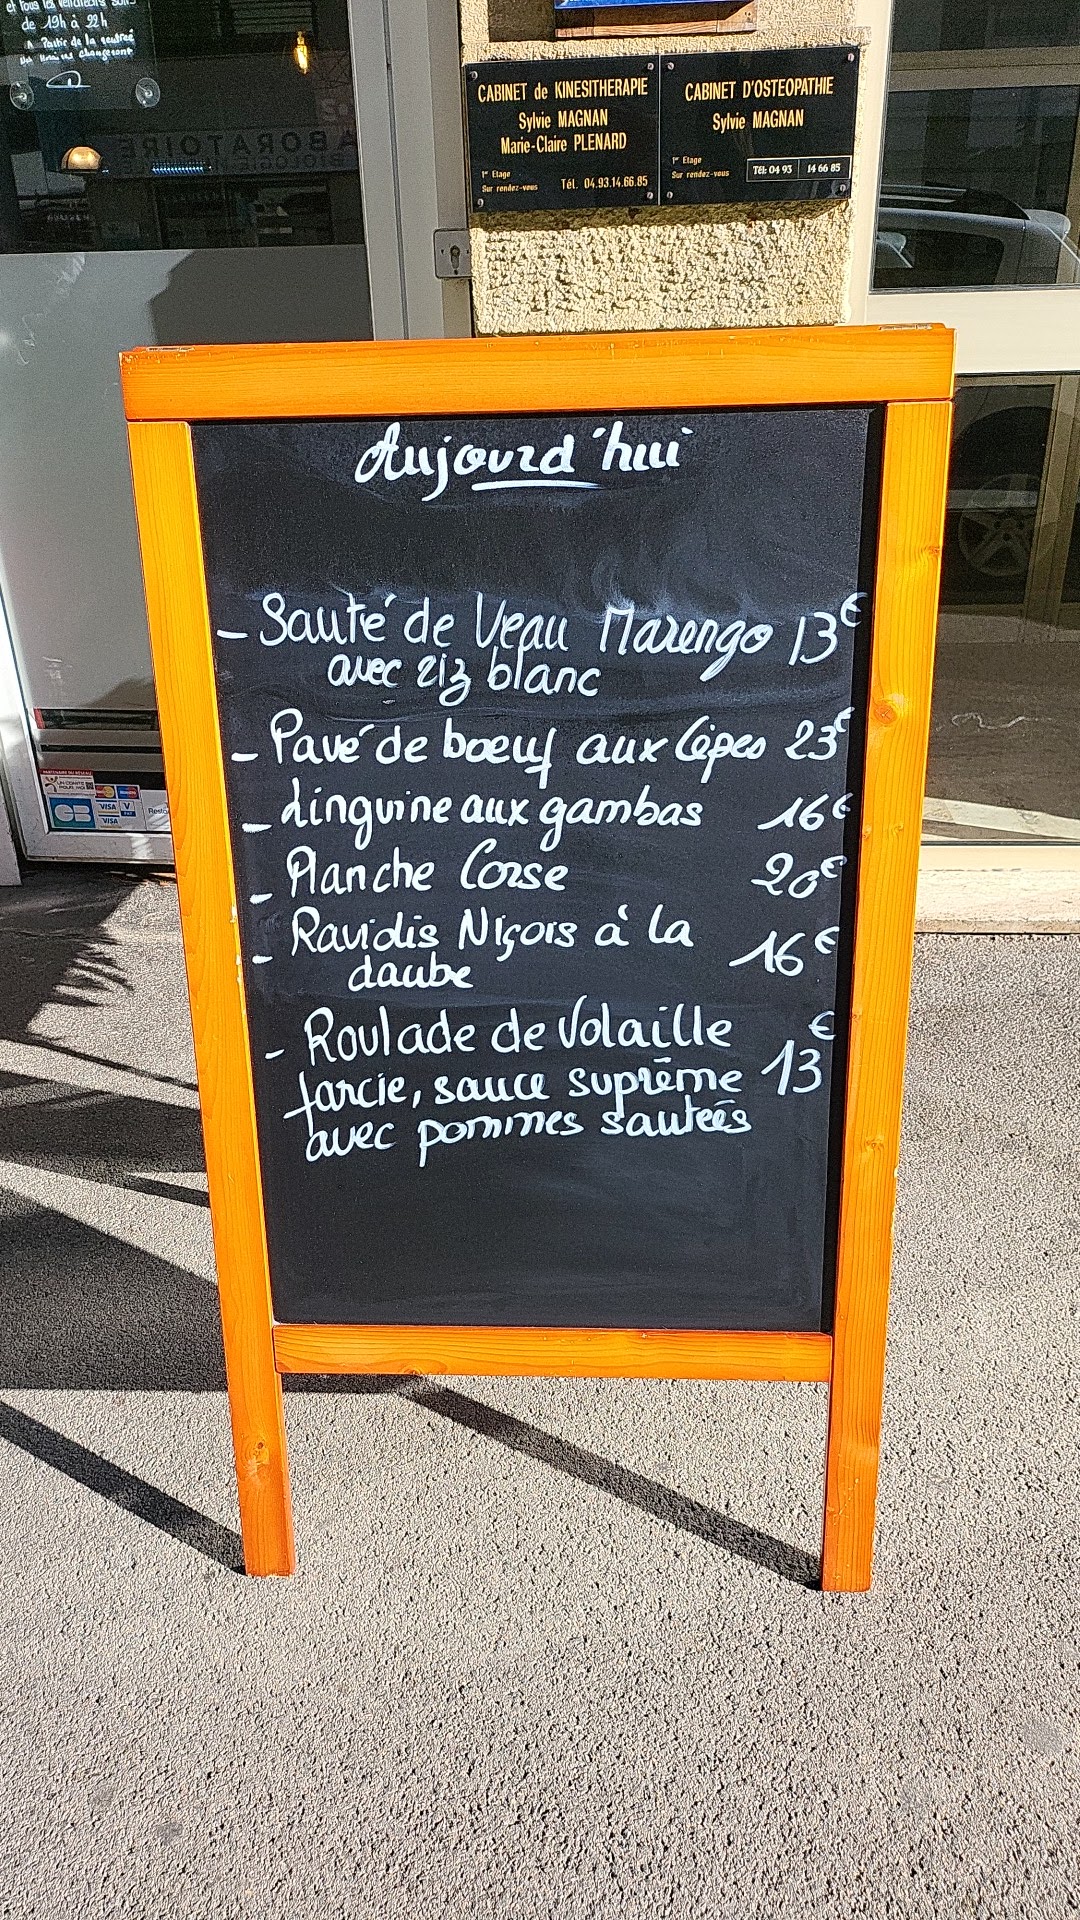 et tous les vendredis soirs
de 19h à 22h
A Partir de la rentrée
CABINET de KINESITHERAPIE
Sylvie MAGNAN
Marie-Claire PLENARD
1er Etage
Sur rendez-vous Tél. 04.93.14.66.85
CABINET D'OSTEOPATHIE
Sylvie MAGNAN
1er Etage
Sur rendez-vous Tél: 04 93 14 66 85
LABORATOIRE
Aujourd'hui
- Sauté de Veau Marengo 13€
avec riz blanc
- Pavé de bœuf aux Cèpes 23€
- Linguine aux gambas 16€
- Planche Corse 20€
- Raviolis Niçois à la
daube 16€
- Roulade de Volaille
farcie, sauce suprême 13€
avec pommes sautées
PARTENAIRE DU RÉSEAU
CB
VISA
V PAY
VISA
Resto